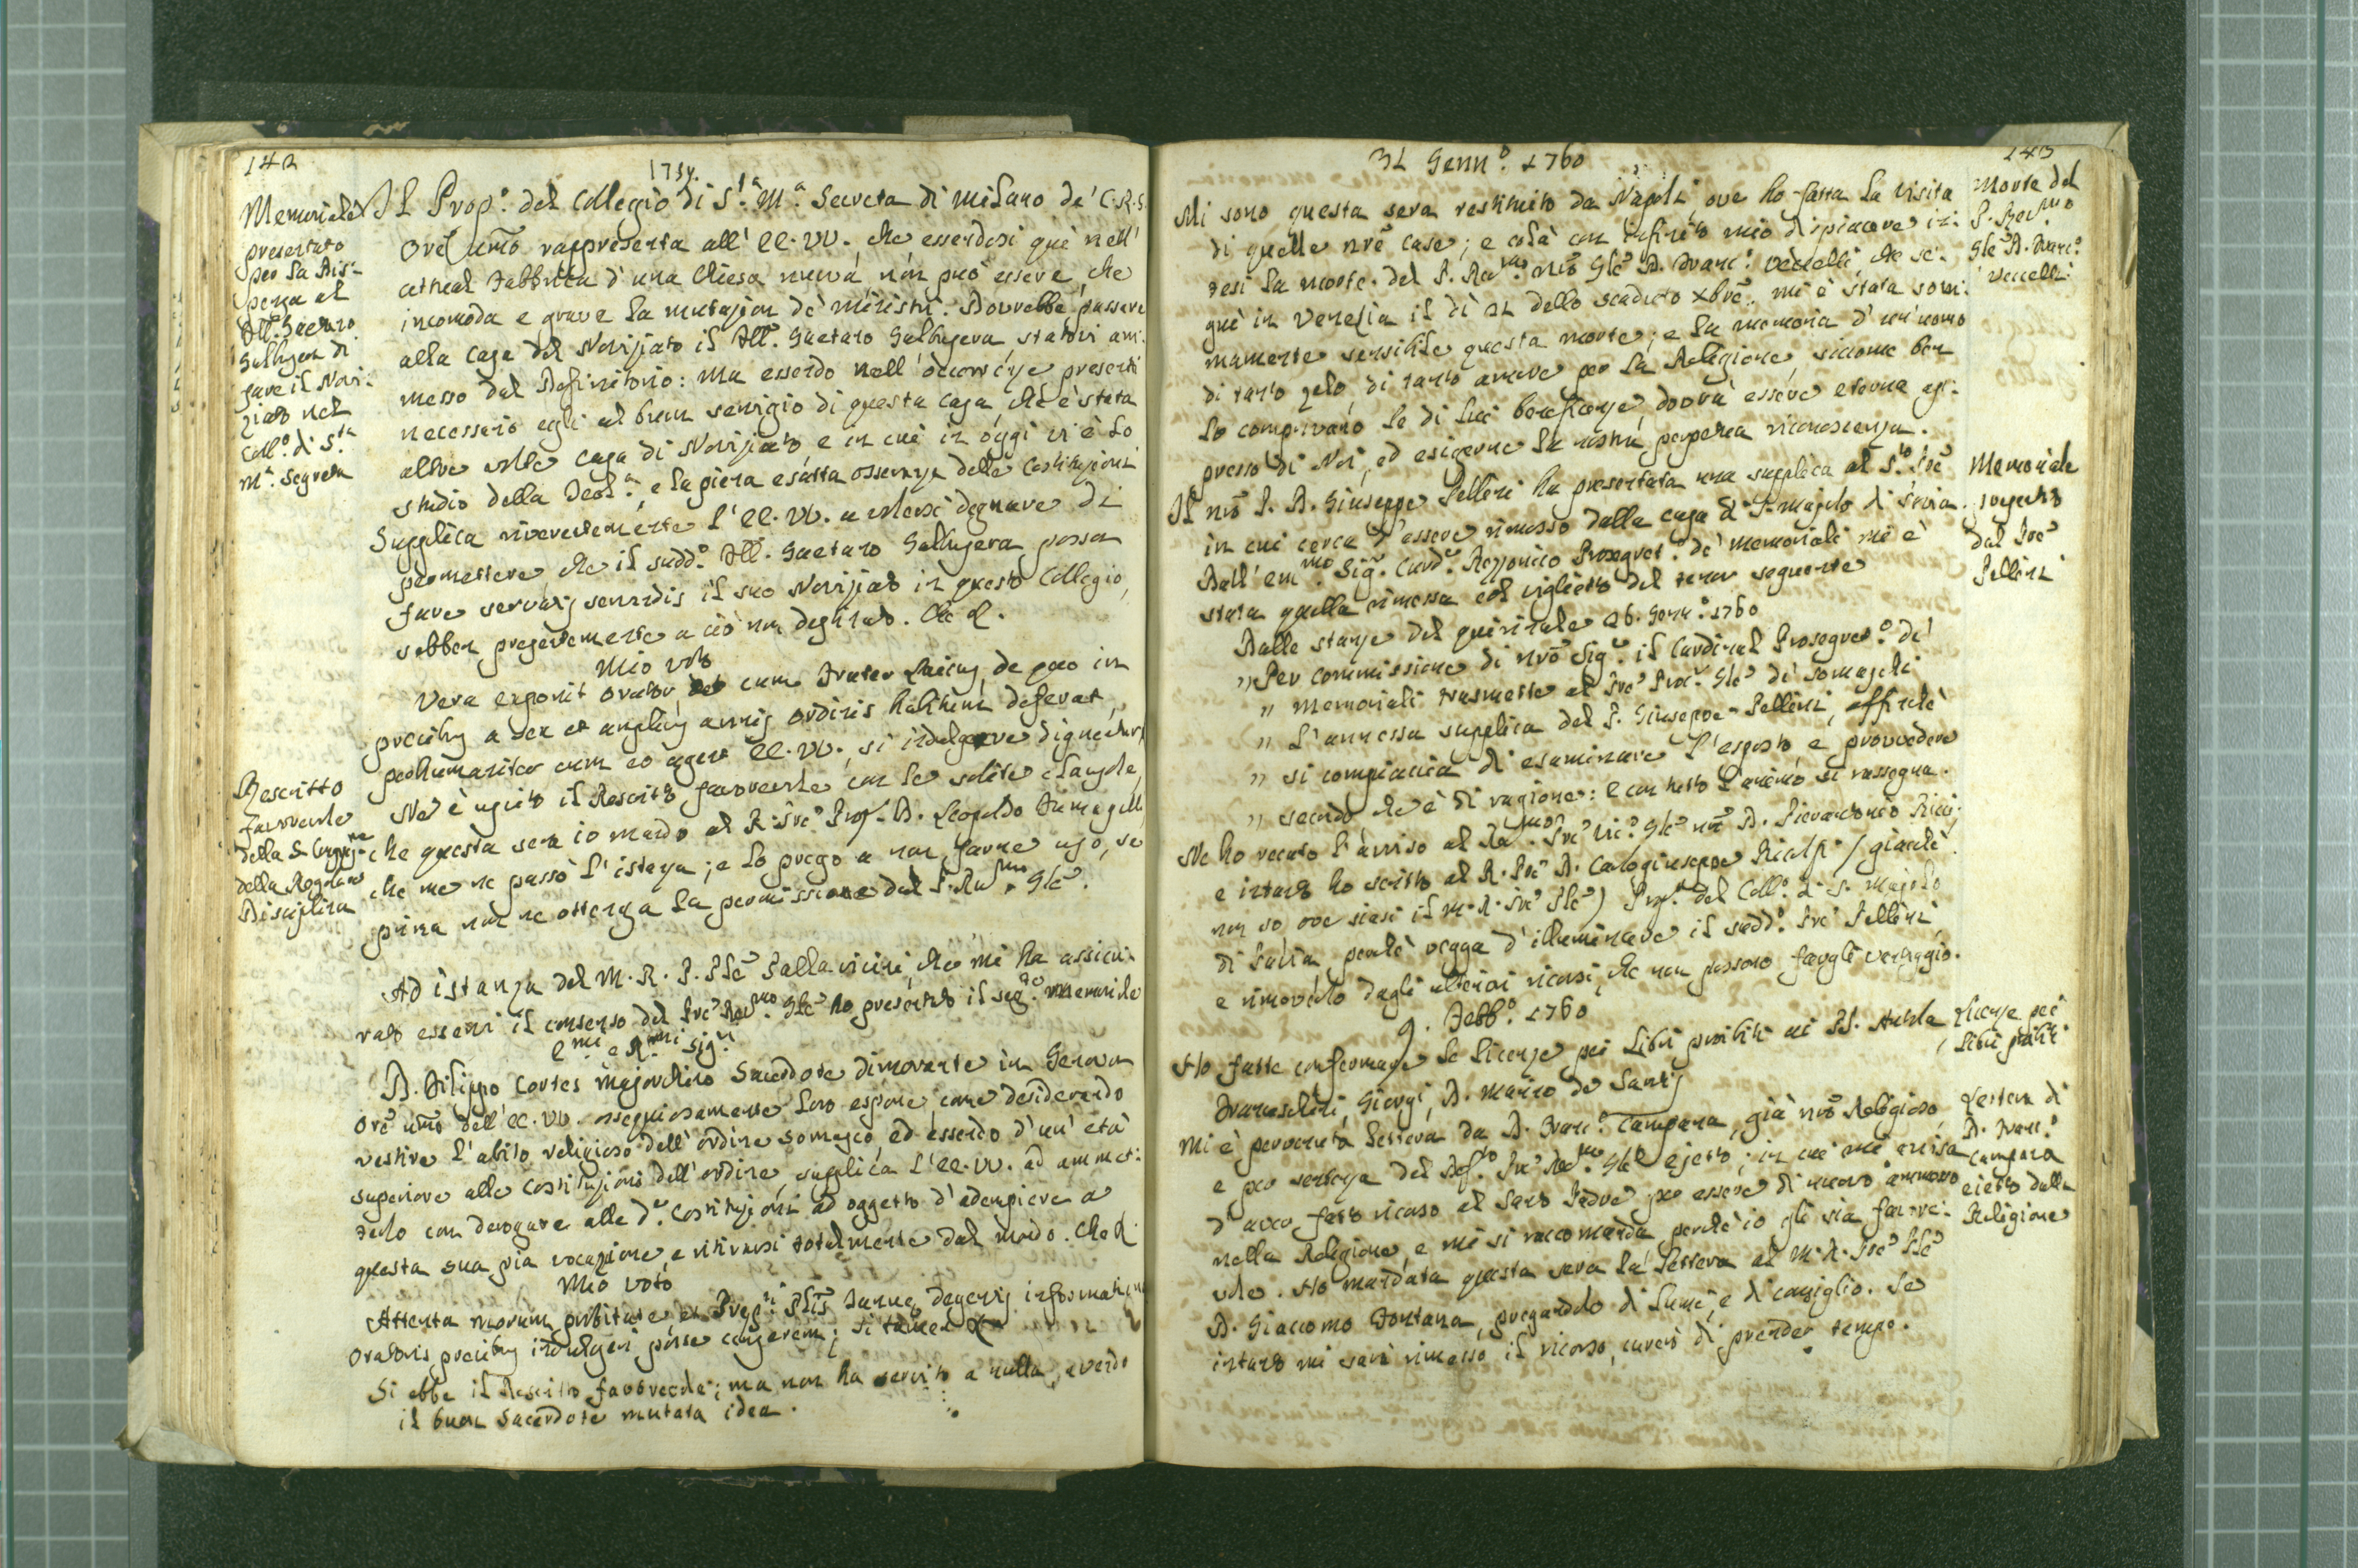 142
1759.
Memoriale
presentato
per la Dis-
pensa al
Ill. Gaetano
Galliyera di
fare il Novi-
ziato nel
Coll.º di S.ta
M.a Segreta
Il Prop.º del Collegio di S.ta M.a Secreta di Milano de' C.R.S.
Ore umo rappresenta all' EE. VV. che essendosi quì nell'
attual Fabbrica d'una Chiesa nuova non può essere, che
incomoda e grave la mutazion de' ministri. Dovrebbe passare
alla casa del Noviziato il Ill. Gaetano Galliyera, statovi am-
messo dal Definitorio: ma essendo nell' occorrenze presenti
necessario egli al buon servigio di questa casa, che è stata
altre volte casa di Noviziato, e in cui in oggi vi è lo
studio della Teol.a, e la piena esatta osservanza delle Costituzioni
Supplica riverentemente l'EE. VV. a volersi degnare di
permettere, che il sudd.º Ill. Gaetano Galliyera possa
fare servatis servandis il suo Noviziato in questo Collegio,
sebben presentemente a ciò non destinato. Che &.
Mio voto
Vera exponit orator, cum Frater Laicus, de quo in
precibus a sex et amplius annis ordinis habitum deferat,
perhumaniter cum eo agent EE. VV. si indulgere dignentur
Rescritto
favorevole
della S. Congreg.ne
della Regolare
Disciplina
Ne è uscito il Rescritto favorevole con le solite clausole,
che questa sera io mando al R. Pre Prop. D. Leopoldo Fumagalli
che me ne passò l'istanza; e lo prego a non farne uso, se
prima non ne ottenga la permissione dal P. Rmo Gle.
Ad istanza del M. R. P. Ple Pallavicini, che mi ha assicu-
rato esservi il consenso del Pre Revmo Gle ho presentato il seg.te memoriale
Emi e Rmi Sig.ri
D. Filippo Cortes Majorchino Sacerdote dimorante in Genova
Ore umo dell' EE. VV. ossequiosamente loro espone, come desiderando
vestire l'abito religioso dell' ordine Somasco, ed essendo d'un' età
superiore alle costituzioni dell' ordine, supplica l'EE. VV. ad ammet-
terlo con derogare alle d.e Costituzioni ad oggetto d'adempiere a
questa sua pia vocazione, e ritirarsi totalmente dal mondo. Che &.
Mio voto
Attenta morum probitate, et Prep.ti Plis Januae degentis informatione
Oratoris precibus indulgeri posse censerem; si tamen &
Si ebbe il Rescritto favorevole; ma non ha servito a nulla, avendo
il buon Sacerdote mutata idea.
143
31 Genn.º 1760
Morte del
P. Revmo
Gle D. Franc.º
Veccelli
Mi sono questa sera restituito da Napoli, ove ho fatta la visita
di quelle nre case; e colà con infinito mio dispiacere in-
tesi la morte del P. Revmo nro Gle D. Franc.º Veccelli, che se-
guì in Venezia il dì 21 dello scaduto Xbre. mi è stata som-
mamente sensibile questa morte; e la memoria d'un' uomo
di tanto zelo, di tanto amore per la Religione, siccome ben
lo comprovano le di lui beneficenze, dovrà essere eterna ap-
presso di Noi, ed esigerne la nostra perpetua riconoscenza.
Memoriale
porto
dal Pre
Pellini
Il nro P. D. Giuseppe Pellini ha presentata una supplica al S.to Pre
in cui cerca d'essere rimosso dalla casa di S. Majolo di Pavia.
Dall' Emmo Sig.r Card.e Rezzonico Prosegret.º de' memoriali mi è
stata quella rimessa col viglietto del tenor seguente
Dalle stanze del quirinale 26. Genn.º 1760
,, Per commissione di nro Sig.re il Cardinal Prosegret.º de'
,, Memoriali trasmette al Pre Proc.r Gle di Somaschi
,, l'annessa supplica del P. Giuseppe Pellini, affinchè
,, si compiaccia di esaminare l'esposto, e provvedere
,, secondo che è di ragione: e con tutto l'animo si rassegna.
Ne ho recato l'avviso al Rdmo Pre Vic.º Gle nro D. Pierantonio Ricci;
e intanto ho scritto al R. Pre D. Carlogiuseppe Rialpi / giacchè
non so ove siasi il M. R. Pre Ple) Prop.to del Coll.º di S. Majolo
di Pavia, perchè vegga d'illuminare il sudd.º Pre Pellini,
e rimoverlo dagli ulteriori ricorsi, che non possono fargli vantaggio.
9. Febb.º 1760
Licenze per
libri proibiti
Ho fatte confermare le licenze pei Libri proibiti ai PP.
Franceschini, Giorgi, D. Mauro de Santis
Lettera di
D. Franc.º
Campana
eietto dalla
Religione
Mi è pervenuta lettera da D. Franc.º Campana, già nro Religioso,
e per sentenza del Def.to Pre Revmo Gle ejetto; in cui mi avvisa
d'aver fatto ricorso al Santo Padre per essere di nuovo ammesso
nella Religione, e mi si raccomanda perchè io gli sia favore-
vole. Ho mandata questa sera la lettera al M. R. Pre Ple
D. Giacomo Fontana, pregandolo di lume, e di consiglio. Se
intanto mi sarà rimesso il ricorso, curerò di prender tempo.